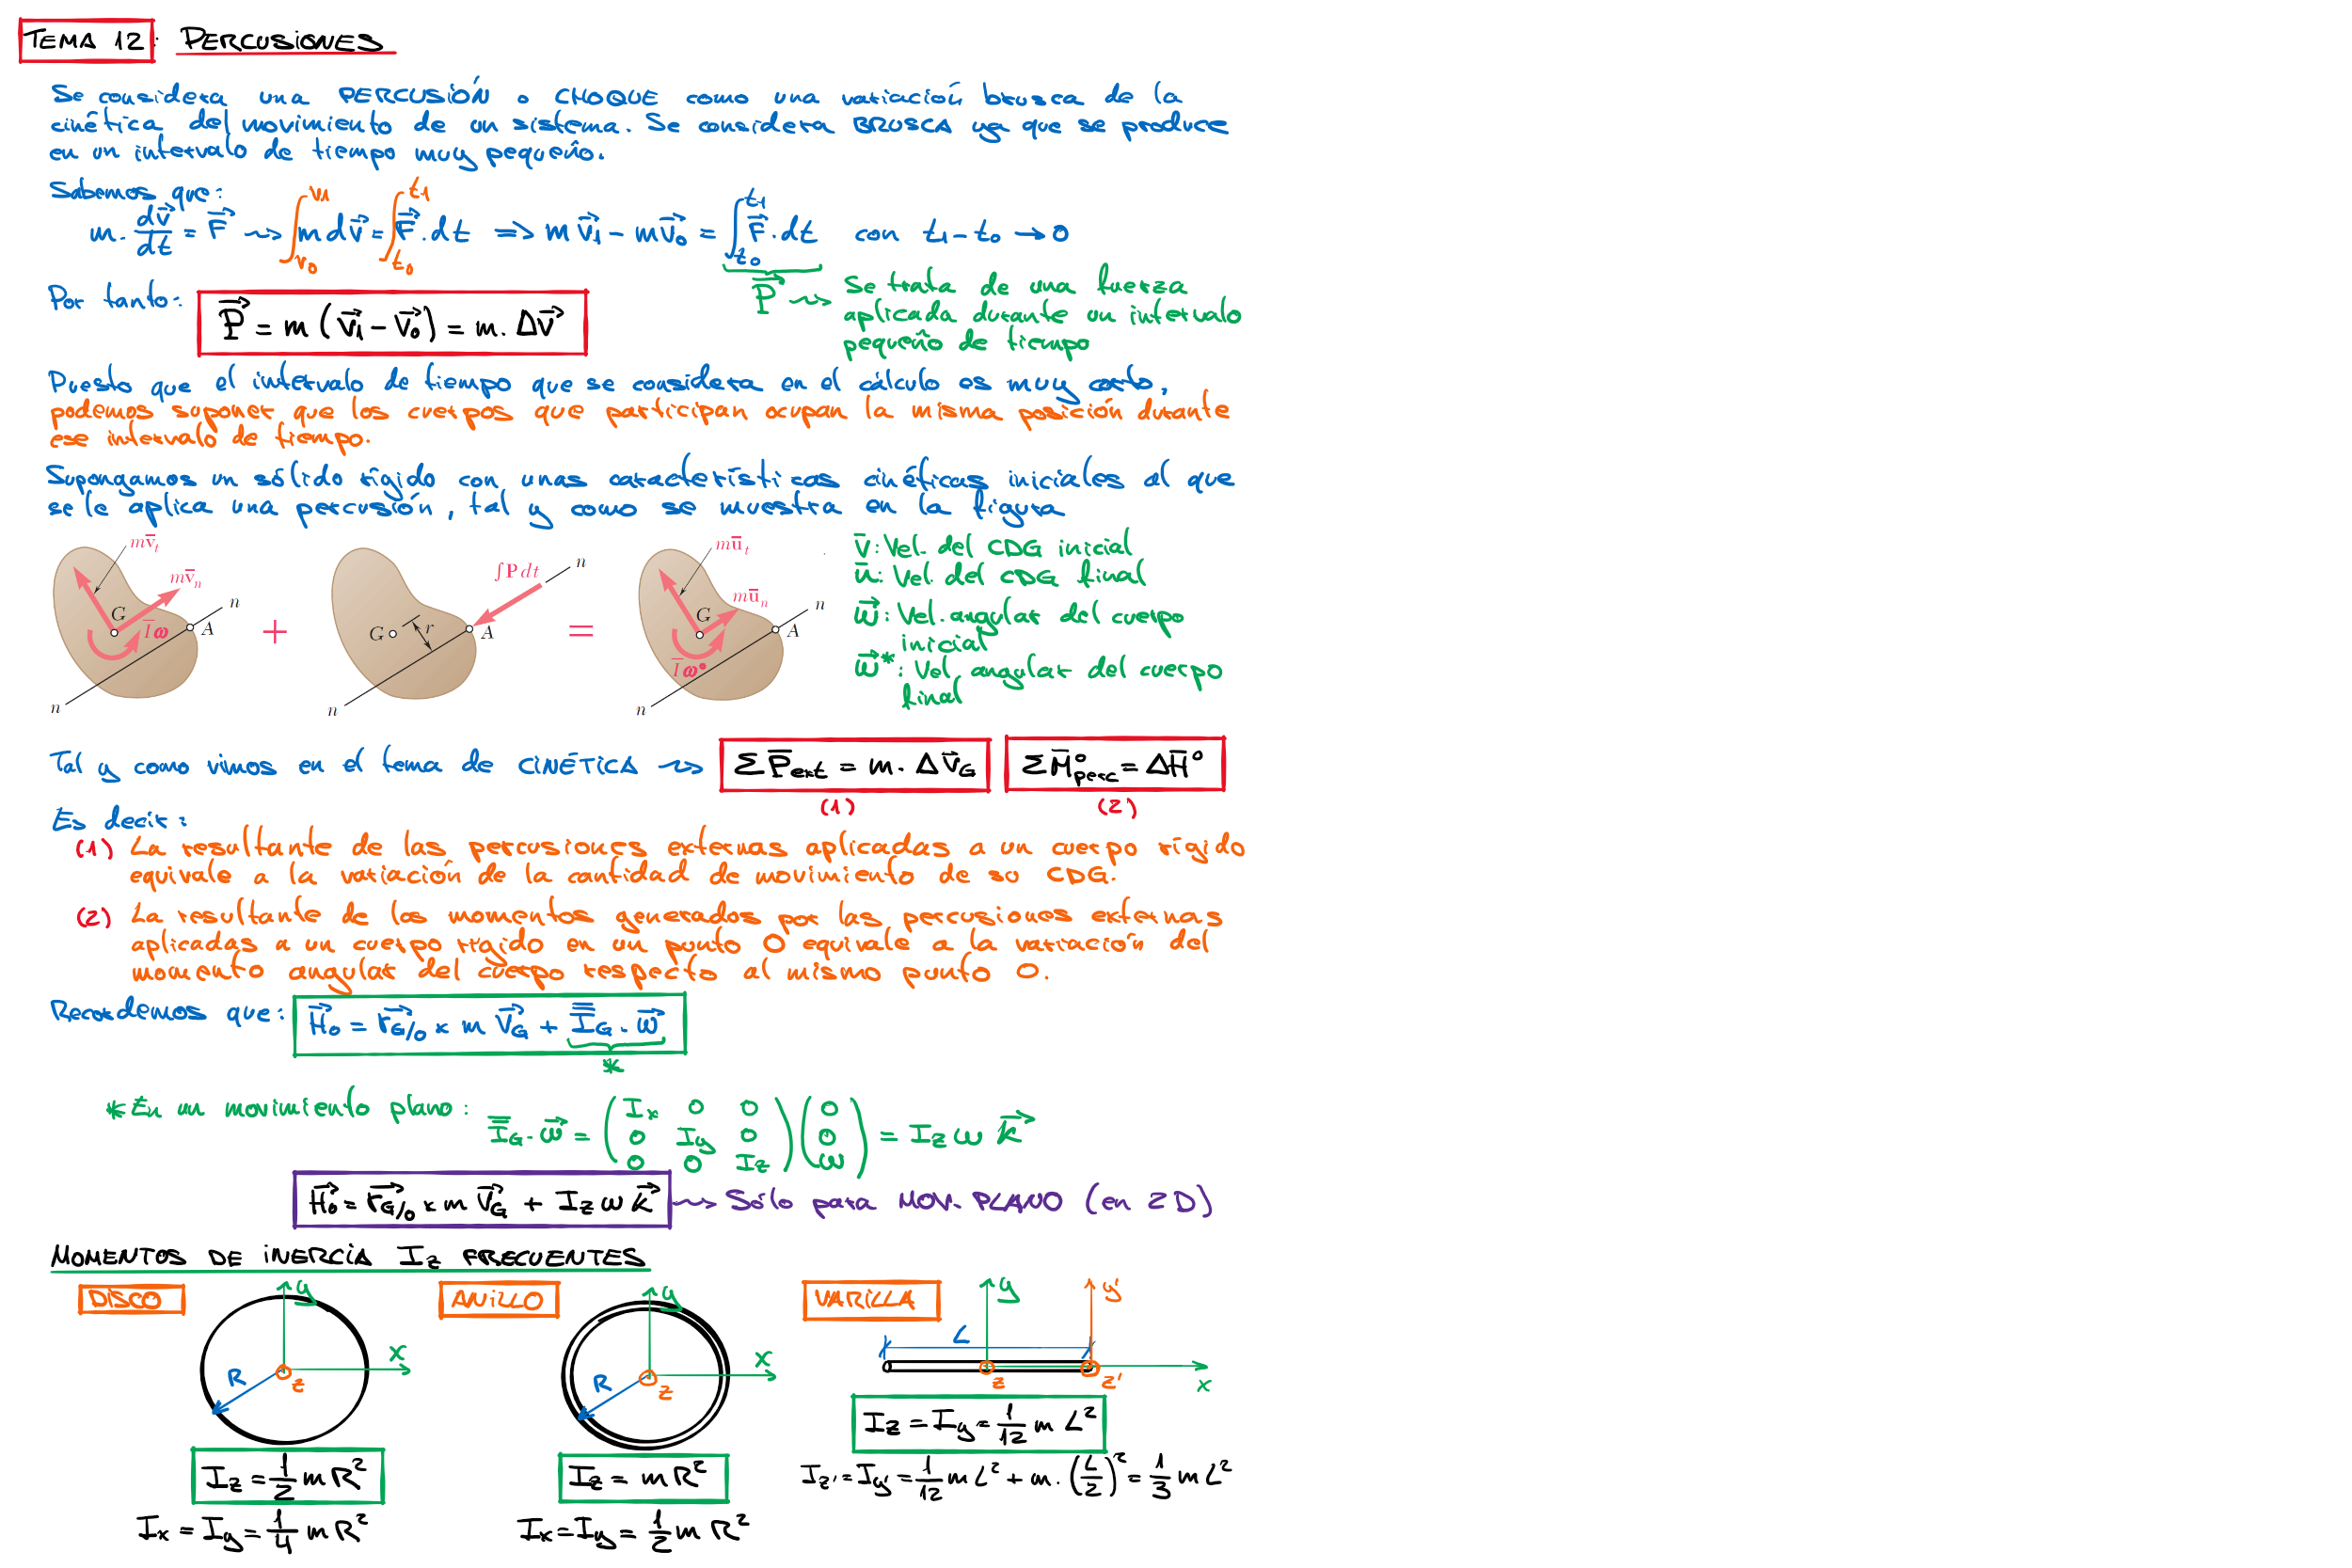 TEMA 12: PERCUSIONES
Se considera una PERCUSIÓN o CHOQUE como una variación brusca de la
cinética del movimiento de un sistema. Se considera BRUSCA ya que se produce
en un intervalo de tiempo muy pequeño.
Sabemos que:
m · dv⃗/dt = F⃗ ⇝ ∫_{v0}^{v1} m dv⃗ = ∫_{t0}^{t1} F⃗ · dt ⇒ m v⃗1 − m v⃗0 = ∫_{t0}^{t1} F⃗ · dt con t1 − t0 → 0
P⃗ ⇝ Se trata de una fuerza
aplicada durante un intervalo
pequeño de tiempo
Por tanto: P⃗ = m (v⃗1 − v⃗0) = m · Δv⃗
Puesto que el intervalo de tiempo que se considera en el cálculo es muy corto,
podemos suponer que los cuerpos que participan ocupan la misma posición durante
ese intervalo de tiempo.
Supongamos un sólido rígido con unas características cinéticas iniciales al que
se le aplica una percusión, tal y como se muestra en la figura
mv̄t mv̄n G Īω A n n
+
∫P dt n G r A n
=
mūt mūn G Īω* A n n
v̄: Vel. del CDG inicial
ū: Vel. del CDG final
ω⃗: Vel. angular del cuerpo
inicial
ω⃗*: Vel angular del cuerpo
final
Tal y como vimos en el tema de CINÉTICA ⇝ ΣP̄ext = m · Δv̄G ΣM̄°perc = ΔH̄°
(1) (2)
Es decir:
(1) La resultante de las percusiones externas aplicadas a un cuerpo rígido
equivale a la variación de la cantidad de movimiento de su CDG.
(2) La resultante de los momentos generados por las percusiones externas
aplicadas a un cuerpo rígido en un punto O equivale a la variación del
momento angular del cuerpo respecto al mismo punto O.
Recordemos que: H⃗o = r⃗G/o × m v⃗G + I̿G · ω⃗
*
* En un movimiento plano: I̿G · ω⃗ = (Ix 0 0; 0 Iy 0; 0 0 Iz) (0; 0; ω) = Iz ω k⃗
H⃗o = r⃗G/o × m v⃗G + Iz ω k⃗ ⇝ Sólo para MOV. PLANO (en 2D)
MOMENTOS DE INERCIA Iz FRECUENTES
DISCO
y
x
R z
Iz = 1/2 m R²
Ix = Iy = 1/4 m R²
ANILLO
y
x
R z
Iz = m R²
Ix = Iy = 1/2 m R²
VARILLA
y y'
L
z z' x
Iz = Iy = 1/12 m L²
Iz' = Iy' = 1/12 m L² + m · (L/2)² = 1/3 m L²